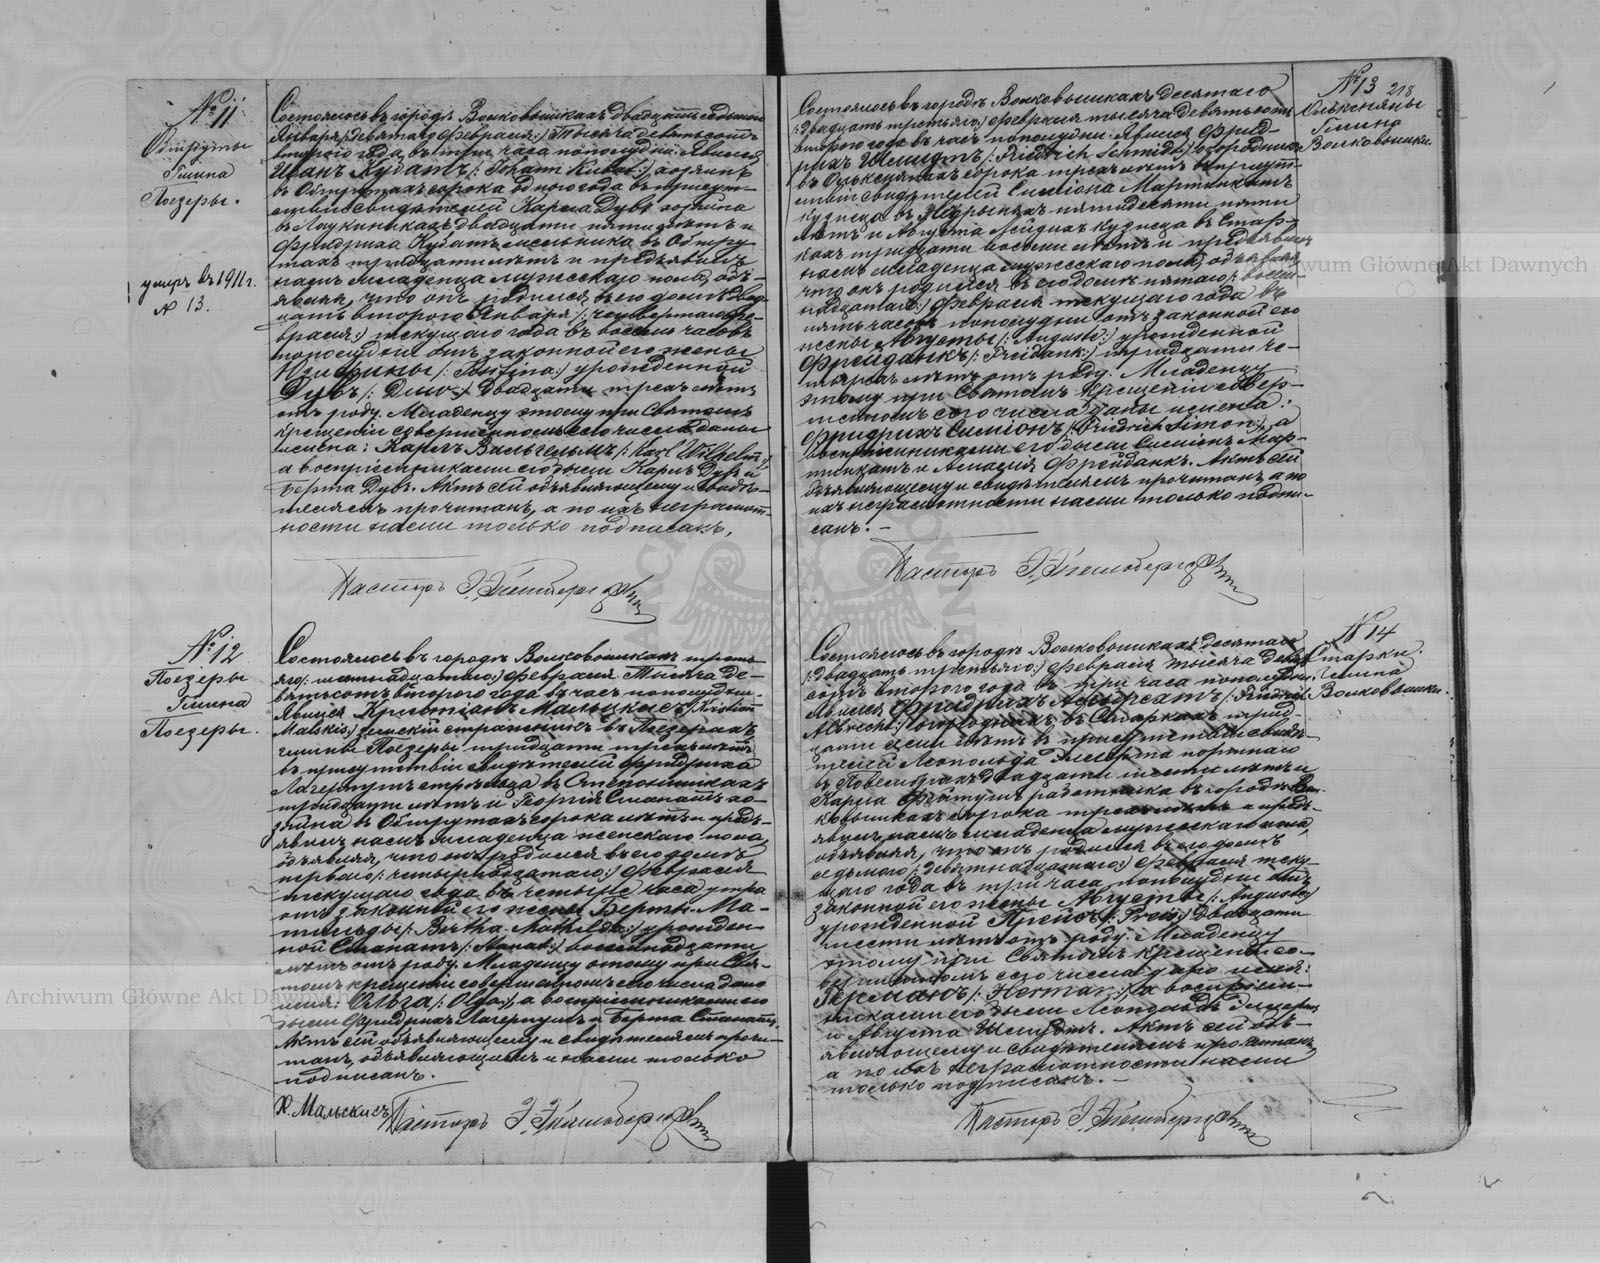 № 11
Обшруты
Гмина
Поезеры.
умеръ въ 1911 г.
№ 13.
Состоялось въ городѣ Волковышкахъ двадцать седьмаго
Января /: девятаго Февраля :/ тысяча девятьсотъ
втораго года въ три часа пополудни. Явился
Иванъ Кубатъ /: Johann Kubat :/ хозяинъ
въ Обшрутахъ сорока одного года въ присут-
ствіи свидѣтелей Карла Дувъ хозяина
въ двадцати пяти лѣтъ и
Фридриха Кубатъ мельника въ Обшру-
тахъ тридцати лѣтъ и предъявилъ
намъ младенца мужескаго пола, объ-
являя, что онъ родился въ его домѣ двад-
цать втораго Января /: четвертаго Фе-
враля :/ текущаго года въ восемь часовъ
пополудни отъ законной его жены
/: :/ урожденной
Дувъ /: :/ двадцати трехъ лѣтъ
отъ роду. Младенцу этому при Святомъ
крещеніи совершенномъ сего числа даны
имена: Карлъ Вильгельмъ /: Karl Wilhelm :/
а воспріемниками его были Карлъ Дувъ и
Берта Дувъ. Актъ сей объявляющему и свидѣ-
телямъ прочитанъ, а по ихъ неграмот-
ности нами только подписанъ.
Пасторъ
№ 12
Поезеры
Гмина
Поезеры.
Состоялось въ городѣ Волковышкахъ треть-
яго /: шестнадцатаго :/ Февраля тысяча де-
вятьсотъ втораго года въ часъ пополудни.
Явился Христіанъ Мальскисъ /: Kristian
Malskis :/ земскій стражникъ въ Поезерахъ
гмины Поезеры тридцати трехъ лѣтъ
въ присутствіи свидѣтелей Фридриха
Лагерпушъ стрѣльца въ
тридцати лѣтъ и Георгія Станатъ хо-
зяина въ Обшрутахъ сорока лѣтъ и предъ-
явилъ намъ младенца женскаго пола,
объявляя, что онъ родился въ его домѣ
перваго /: четырнадцатаго :/ Февраля
текущаго года въ четыре часа утра
отъ законной его жены Берты Ма-
тильды /: Bertha Mathilde :/ урожден-
ной Станатъ /: :/ восемнадцати
лѣтъ отъ роду. Младенцу этому при Свя-
томъ крещеніи совершенномъ сего числа дано
имя: Ольга /: Olga :/, а воспріемниками его
были Фридрихъ Лагерпушъ и Берта Станатъ.
Актъ сей объявляющему и свидѣтелямъ прочи-
танъ, объявляющимъ и нами только
подписанъ.
Х. Мальскисъ Пасторъ
№ 13 218
Гмина
Волковышки
Состоялось въ городѣ Волковышкахъ десятаго
/: двадцать третьяго :/ Февраля тысяча девятьсотъ
втораго года въ часъ пополудни. Явился Фрид-
рихъ Шмидтъ /: Fridrich Schmidt :/ огородникъ
въ сорока трехъ лѣтъ въ присут-
ствіи свидѣтелей Симона Мартинкатъ
кузнеца въ пятидесяти пяти
лѣтъ и Августа кузнеца въ Стар-
кахъ тридцати восьми лѣтъ и предъявилъ
намъ младенца мужескаго пола, объявляя,
что онъ родился въ его домѣ пятаго /: восем-
надцатаго :/ Февраля текущаго года въ
пять часовъ пополудни отъ законной его
жены Августы /: Auguste :/ урожденной
Фрейданкъ /: Freidank :/ тридцати че-
тырехъ лѣтъ отъ роду. Младенцу
этому при Святомъ Крещеніи совер-
шенномъ сего числа даны имена:
Фридрихъ Симонъ /: Fridrich Simon :/, а
воспріемниками его были Симонъ Мар-
тинкатъ и Амалія Фрейданкъ. Актъ сей
объявляющему и свидѣтелямъ прочитанъ, а по
ихъ неграмотности нами только подпи-
санъ. —
Пасторъ
№ 14
Старки.
Гмина
Волковышки.
Состоялось въ городѣ Волковышкахъ десятаго
/: двадцать третьяго :/ Февраля тысяча девять-
сотъ втораго года въ три часа пополудни.
Явился Фридрихъ Альбрехтъ /: Fridrich
Albrecht :/ огородникъ въ Старкахъ трид-
цати семи лѣтъ въ присутствіи свидѣ-
телей Леопольда
въ двадцати шести лѣтъ и
Карла работника въ городѣ Вол-
ковышкахъ сорока трехъ лѣтъ и предъ-
явилъ намъ младенца мужескаго пола,
объявляя, что онъ родился въ его домѣ
седьмаго /: :/ Февраля теку-
щаго года въ три часа пополудни отъ
законной его жены Августы /: Auguste :/
урожденной Прейсъ /: Preis :/ двадцати
шести лѣтъ отъ роду. Младенцу
этому при Святомъ Крещеніи со-
вершенномъ сего числа дано имя:
Германъ /: Herman :/, а воспріем-
никами его были Леопольдъ
и Августа Шмидтъ. Актъ сей объ-
являющему и свидѣтелямъ прочитанъ,
а по ихъ неграмотности нами
только подписанъ. —
Пасторъ
Archiwum Główne Akt Dawnych
Archiwum Główne Akt Dawnych